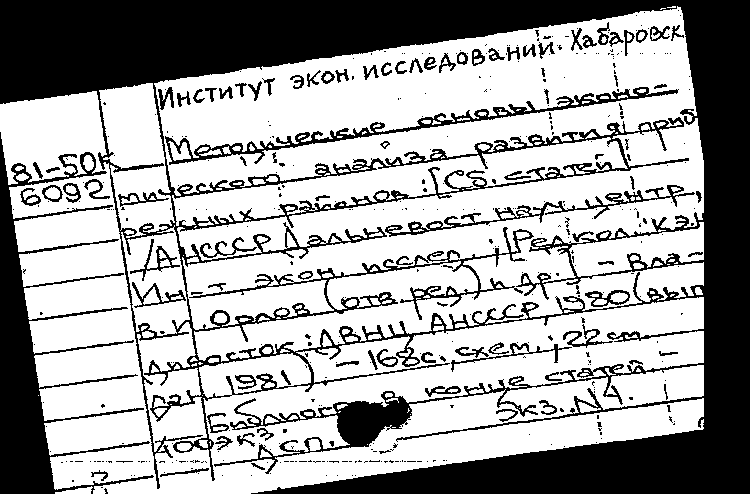 Институт экон. исследований. Хабаровск
81-50К
6092
Методические основы эконо-
мического анализа развития приб
режных районов: [Сб. статей]
/АН СССР Дальневост. науч. центр,
Ин-т экон. исслед.; [Редкол.: кан
В.П. Орлов (отв. ред.) и др.] - Вла-
дивосток: ДВНЦ АН СССР, 1980 (вып
дан. 1981). - 168с., схем.; 22 см.
Библиогр. в конце статей. -
400 экз.
Дсп. Экз. N4.